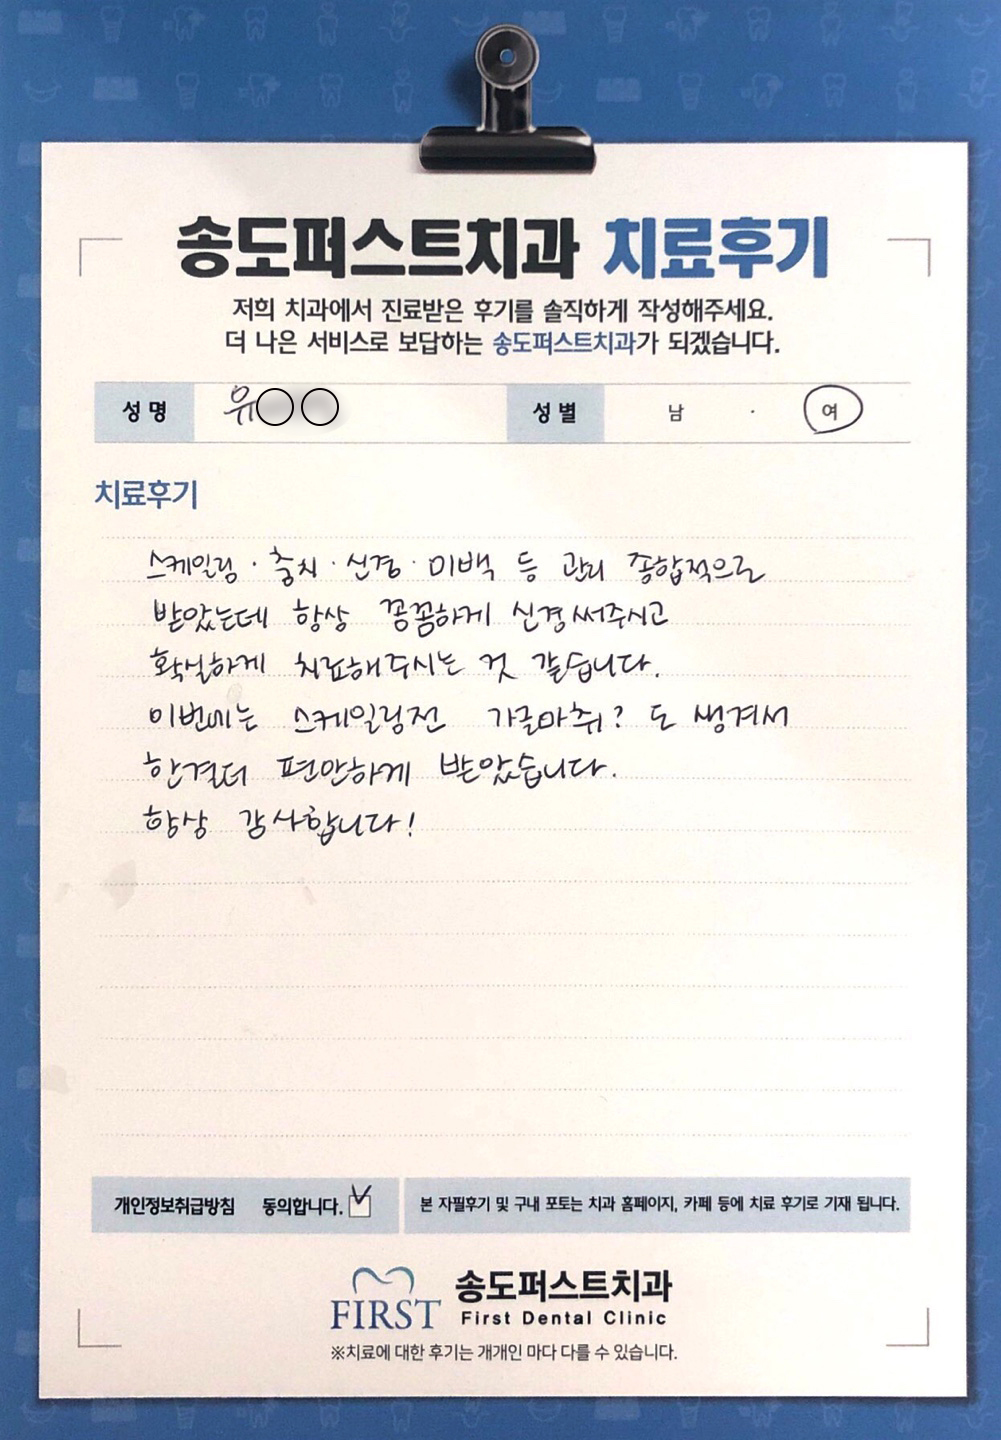 송도퍼스트치과 치료후기
저희 치과에서 진료받은 후기를 솔직하게 작성해주세요.
더 나은 서비스로 보답하는 송도퍼스트치과가 되겠습니다.
성명 유○○ 성별 남 · 여
치료후기
스케일링 · 충치 · 신경 · 미백 등 관리 종합적으로
받았는데 항상 꼼꼼하게 신경써주시고
확실하게 치료해주시는 것 같습니다.
이번에는 스케일링전 가글마취? 도 생겨서
한결더 편안하게 받았습니다.
항상 감사합니다!
개인정보취급방침 동의합니다.
본 자필후기 및 구내 포토는 치과 홈페이지, 카페 등에 치료 후기로 기재 됩니다.
FIRST 송도퍼스트치과
First Dental Clinic
※치료에 대한 후기는 개개인 마다 다를 수 있습니다.